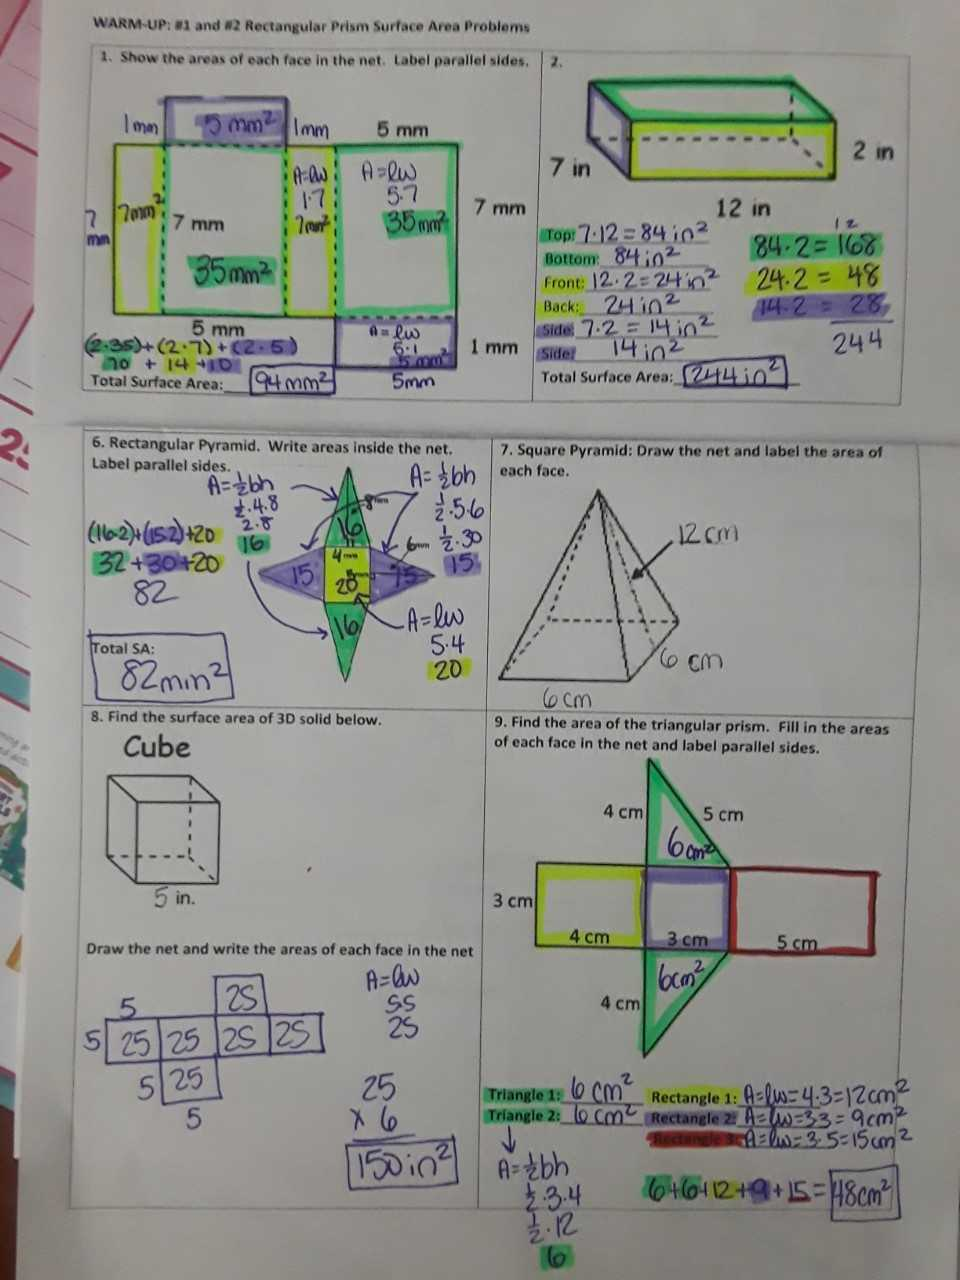 WARM-UP: #1 and #2 Rectangular Prism Surface Area Problems
1. Show the areas of each face in the net. Label parallel sides.
1mm
5 mm²
1mm
5 mm
7mm²
7 mm
7 mm
35mm²
A=lw
1·7
7mm²
A=lw
5·7
35mm²
7 mm
5 mm
A=lw
5·1
5 mm²
1 mm
5mm
(2·35)+(2·7)+(2·5)
70 + 14 +10
Total Surface Area: 94mm²
2.
7 in
2 in
12 in
Top: 7·12=84in²
Bottom: 84in²
Front: 12·2=24in²
Back: 24in²
Side: 7·2=14in²
Side: 14in²
12
84·2=168
24·2= 48
14·2= 28
244
Total Surface Area: 244in²
6. Rectangular Pyramid. Write areas inside the net.
Label parallel sides.
A=½bh
½·4·8
2·8
16
(16·2)+(15·2)+20
32+30+20
82
Total SA:
82mm²
8mm
16
4mm
15
20
15
6mm
16
A=½bh
½·5·6
½·30
15
A=lw
5·4
20
7. Square Pyramid: Draw the net and label the area of
each face.
12cm
6 cm
6cm
8. Find the surface area of 3D solid below.
Cube
5 in.
Draw the net and write the areas of each face in the net
5
25
5 25 25 25 25
5 25
5
A=lw
5·5
25
25
x 6
150in²
9. Find the area of the triangular prism. Fill in the areas
of each face in the net and label parallel sides.
4 cm
5 cm
6cm²
3 cm
4 cm
3 cm
5 cm
6cm²
4 cm
Triangle 1: 6cm²
Triangle 2: 6cm²
Rectangle 1: A=lw=4·3=12cm²
Rectangle 2: A=lw=3·3=9cm²
Rectangle 3: A=lw=3·5=15cm²
A=½bh
½·3·4
½·12
6
6+6+12+9+15=48cm²